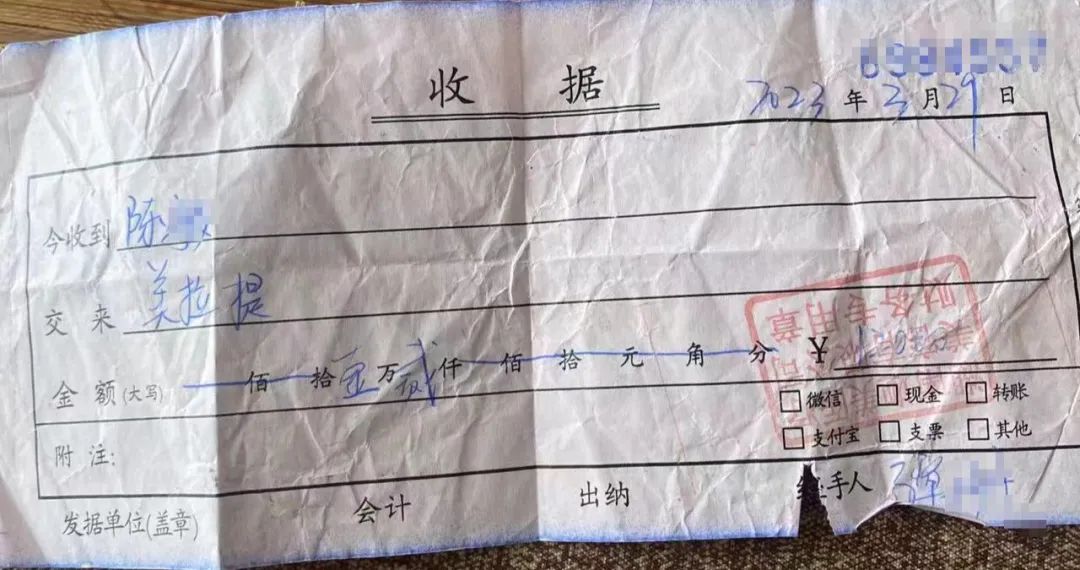 收据
2023年3月29日
今收到 陈
交来 美拉提
金额(大写) 佰拾壹万贰仟佰拾元角分 ¥12000
财务专用章
□微信 □现金 □转账
□支付宝 □支票 □其他
附注:
发据单位(盖章) 会计 出纳 经手人